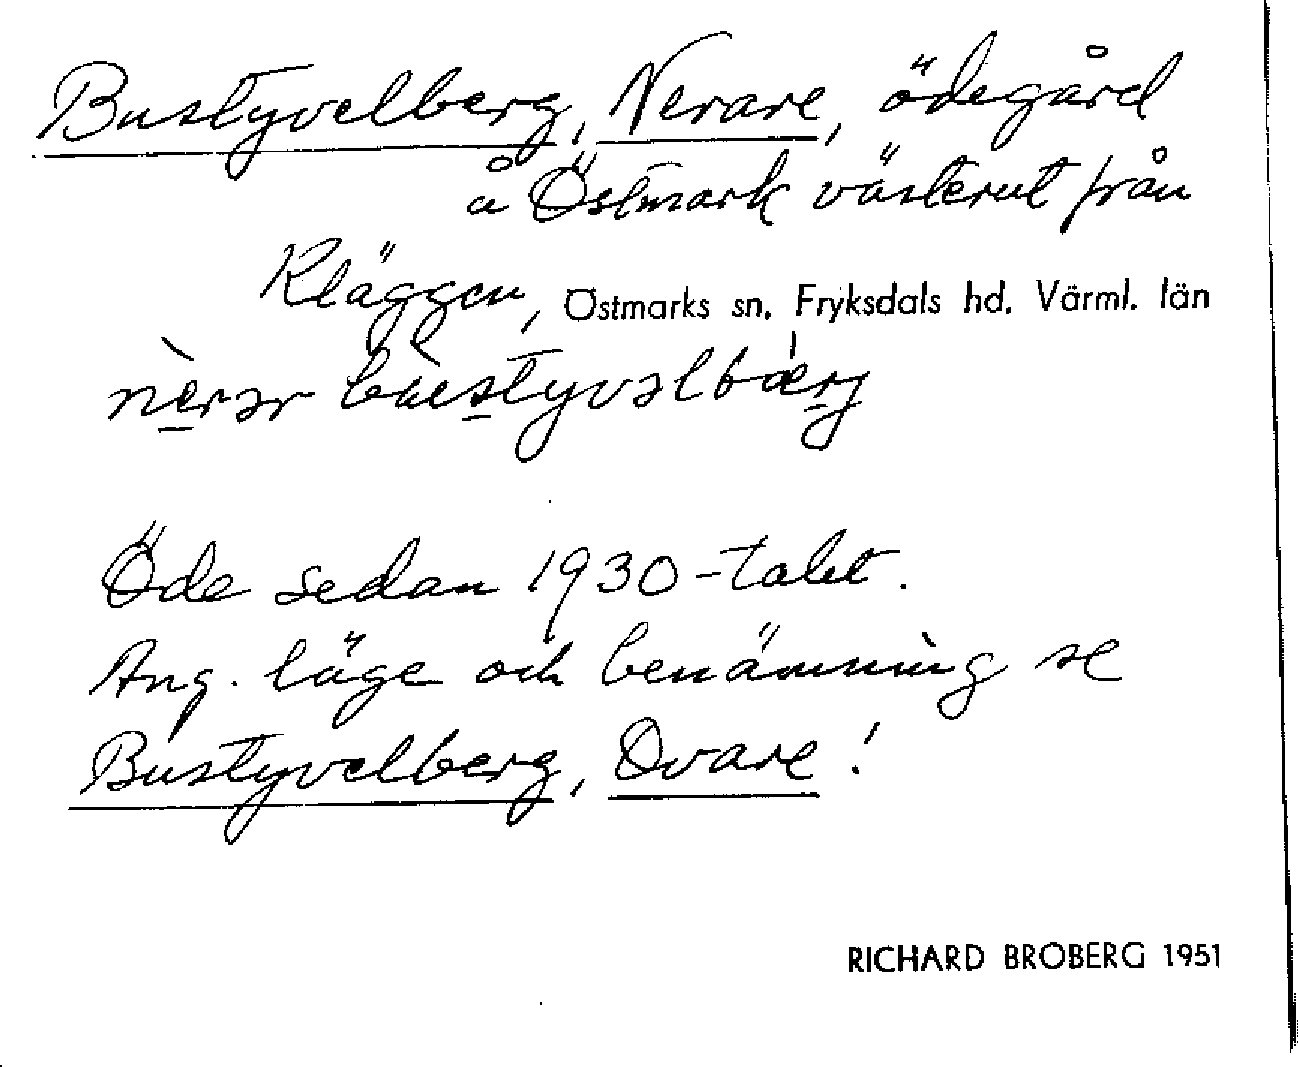 Bustyvelberg, Nerare, ödegård
å Östmark västerut från
Kläggen, Östmarks sn, Fryksdals hd. Värml. län
nèrər bùstyvəlbærj
Öde sedan 1930-talet.
Ang. läge och benämning se
Bustyvelberg, Ovare!
RICHARD BROBERG 1951